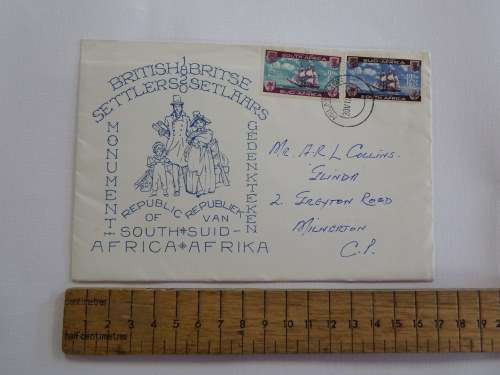 1820
BRITISH BRITSE
SETTLERS SETLAARS
MONUMENT
GEDENKTEKEN
REPUBLIC REPUBLIEK
OF VAN
SOUTH SUID-
AFRICA AFRIKA
SOUTH AFRICA
SUID-AFRIKA
SOUTH AFRICA
MR. A.R L COLLINS.
GLINDA
2. GREYTON ROAD
MILNERTON
C.P.
centimetres
1 2 3 4 5 6 7 8 9 10 11 12 13 14 15 16 17 18 19 2
half-centimetres